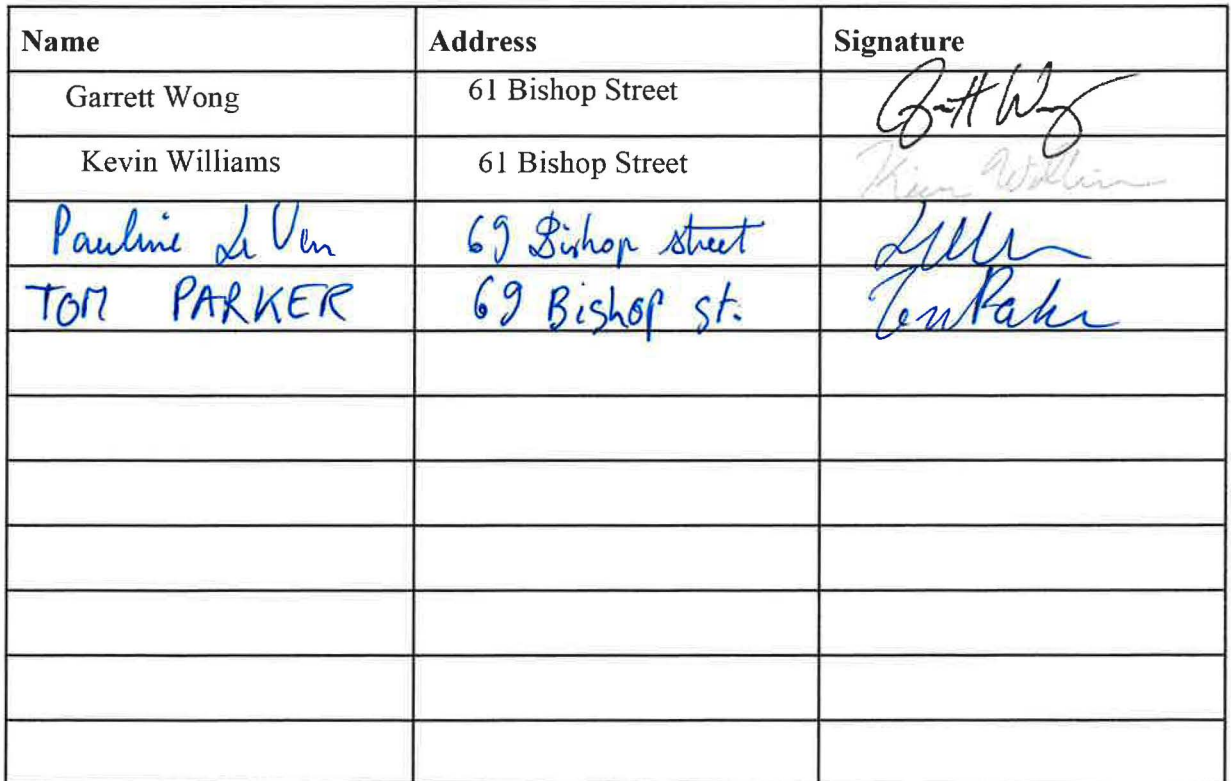 Name Address Signature
Garrett Wong 61 Bishop Street
Kevin Williams 61 Bishop Street
Pauline Le Ven 69 Bishop street
TOM PARKER 69 Bishop st. Tom Parker